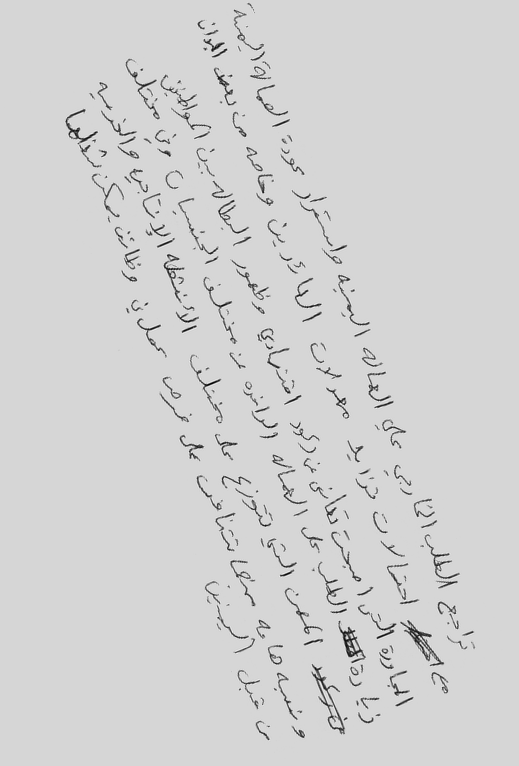 تراجع الطلب الخارجي على العماله اليمنيه واستمرار عودة العمالة اليمنية
مع احتمالات تزايد معدلات العائدين وخاصه من بعض البلدان
المجاورة التي اصبحت تعاني من ركود اقتصادي وظهور البطاله بين المواطنين
زيادة الطلب على العماله الوافده من مختلف الجنسيات وفي مختلف
المهن التي تتوزع على مختلف الانشطه الانتاجيه والخدميه
ونسبه هامه منها يتنافس على فرص عمل في وظائف يمكن شغلها
من قبل اليمنيين